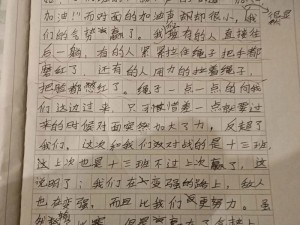 加油!"而对面的加油声却都很小,我
们的气势赢了。我赛有的人直接往
后一躺,有的人累累拉住绳子把手都
磨红了 还有的人用力的拉着绳子,
把脸都憋红了。绳子一点一点的向我
们这边过来,只可惜差一点就要过
来的时候对面突然加大了力,反超了
我们。这次和我们对战的是十三班,
这上次也是十三班不过上次赢了,这
说明了:我们在变强的路上,敌人
也在变强,而且比我们更努力。虽